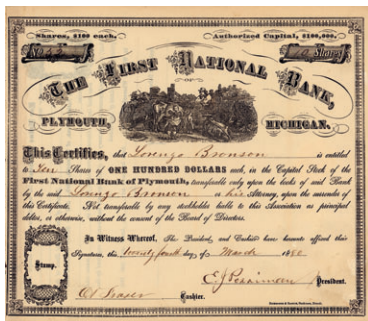 Shares, $100 each. Authorized Capital, $100,000.
No. Shares
The First National Bank,
PLYMOUTH, MICHIGAN.
This Certifies, that Lorenzo Bronson is entitled
to Ten Shares of ONE HUNDRED DOLLARS each, in the Capital Stock of the
First National Bank of Plymouth, transferable only upon the books of said Bank
by the said Lorenzo Bronson or his Attorney, upon the surrender of
this Certificate. Not transferable by any stockholder liable to this Association as principal
debtor, or otherwise, without the consent of the Board of Directors.
In Witness Whereof, The President and Cashier have hereunto affixed their
Signatures, this twenty fourth day of March
Stamp.
President.
Cashier.